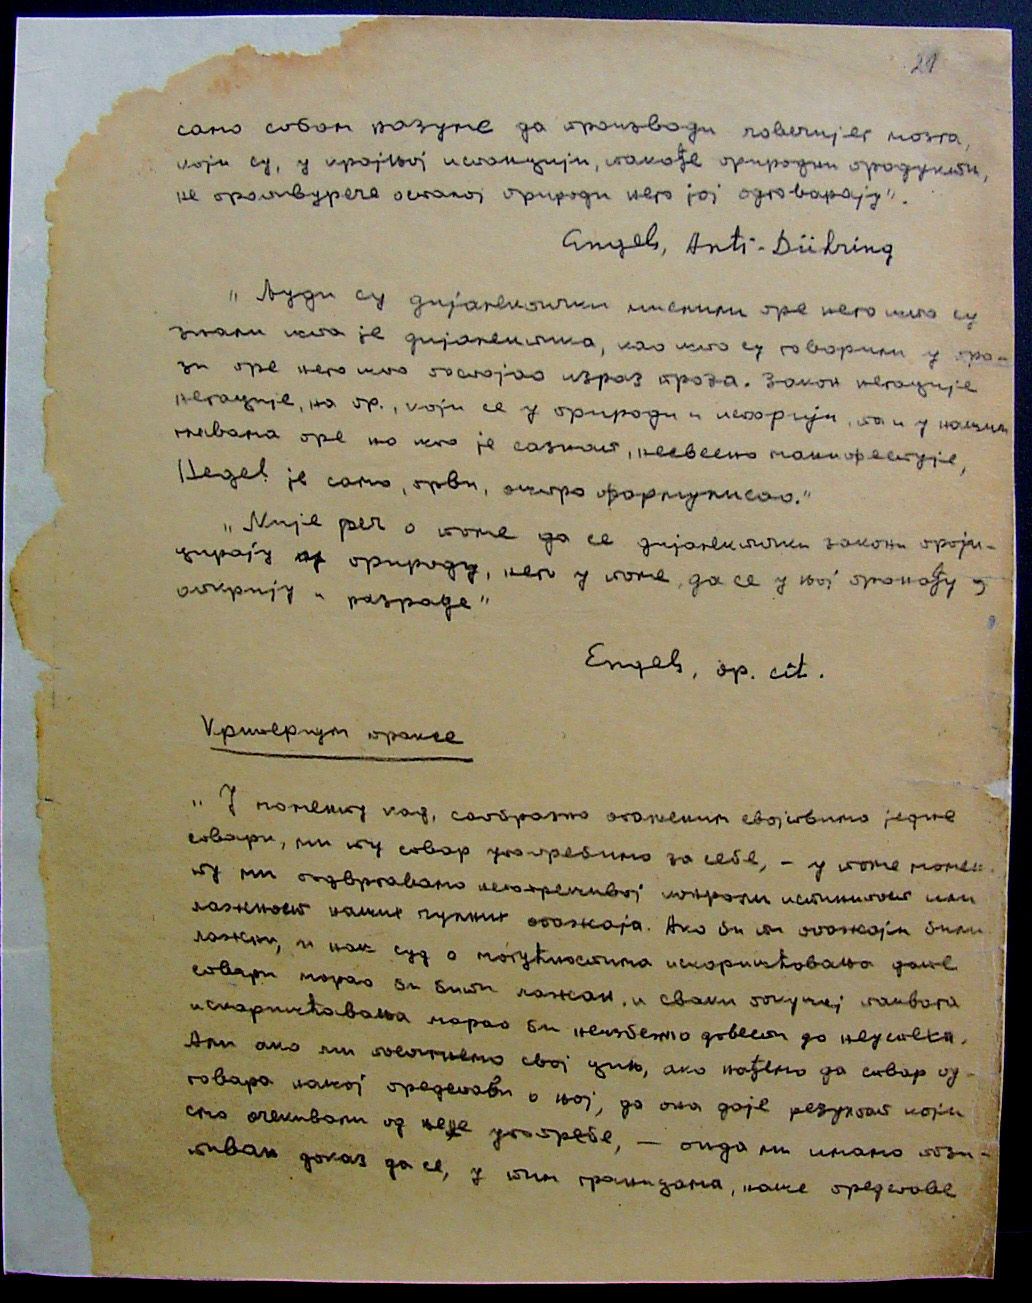 21
само собом разуме да производи човечијег мозга,
који су, у крајњој инстанцији, такође природни продукти,
не противурече осталој природи него јој одговарају".
Engels, Anti-Dühring
„Људи су дијалектички мислили пре него што су
знали шта је дијалектика, као што су говорили у про-
зи пре него што постојао израз проза. Закон негације
негације, на пр., који се у природи и историји, па и у нашим
главама пре но што је сазнат, несвесно манифестује,
Hegel је само, први, оштро формулисао."
„Није реч о томе да се дијалектички закони проји-
цирају у природу, него у томе, да се у њој пронађу и
открију и разраде"
Engels, op. cit.
Критеријум праксе
„У моменту кад, саобразно опаженим својствима једне
ствари, ми ту ствар употребимо за себе, – у томе момен-
ту ми подвргавамо непогрешивој контроли истинитост или
лажност наших чулних опажаја. Ако би ти опажаји били
лажни, и наш суд о могућностима искоришћовања дате
ствари морао би бити лажан, и сваки покушај таквога
искоришћавања морао би неизбежно довести до неуспеха.
Али ако ми постигнемо свој циљ, ако нађемо да ствар од-
говара нашој представи о њој, да она даје резултат који
смо очекивали од њене употребе, – онда ми имамо пози-
тиван доказ да се, у тим границама, наше представе